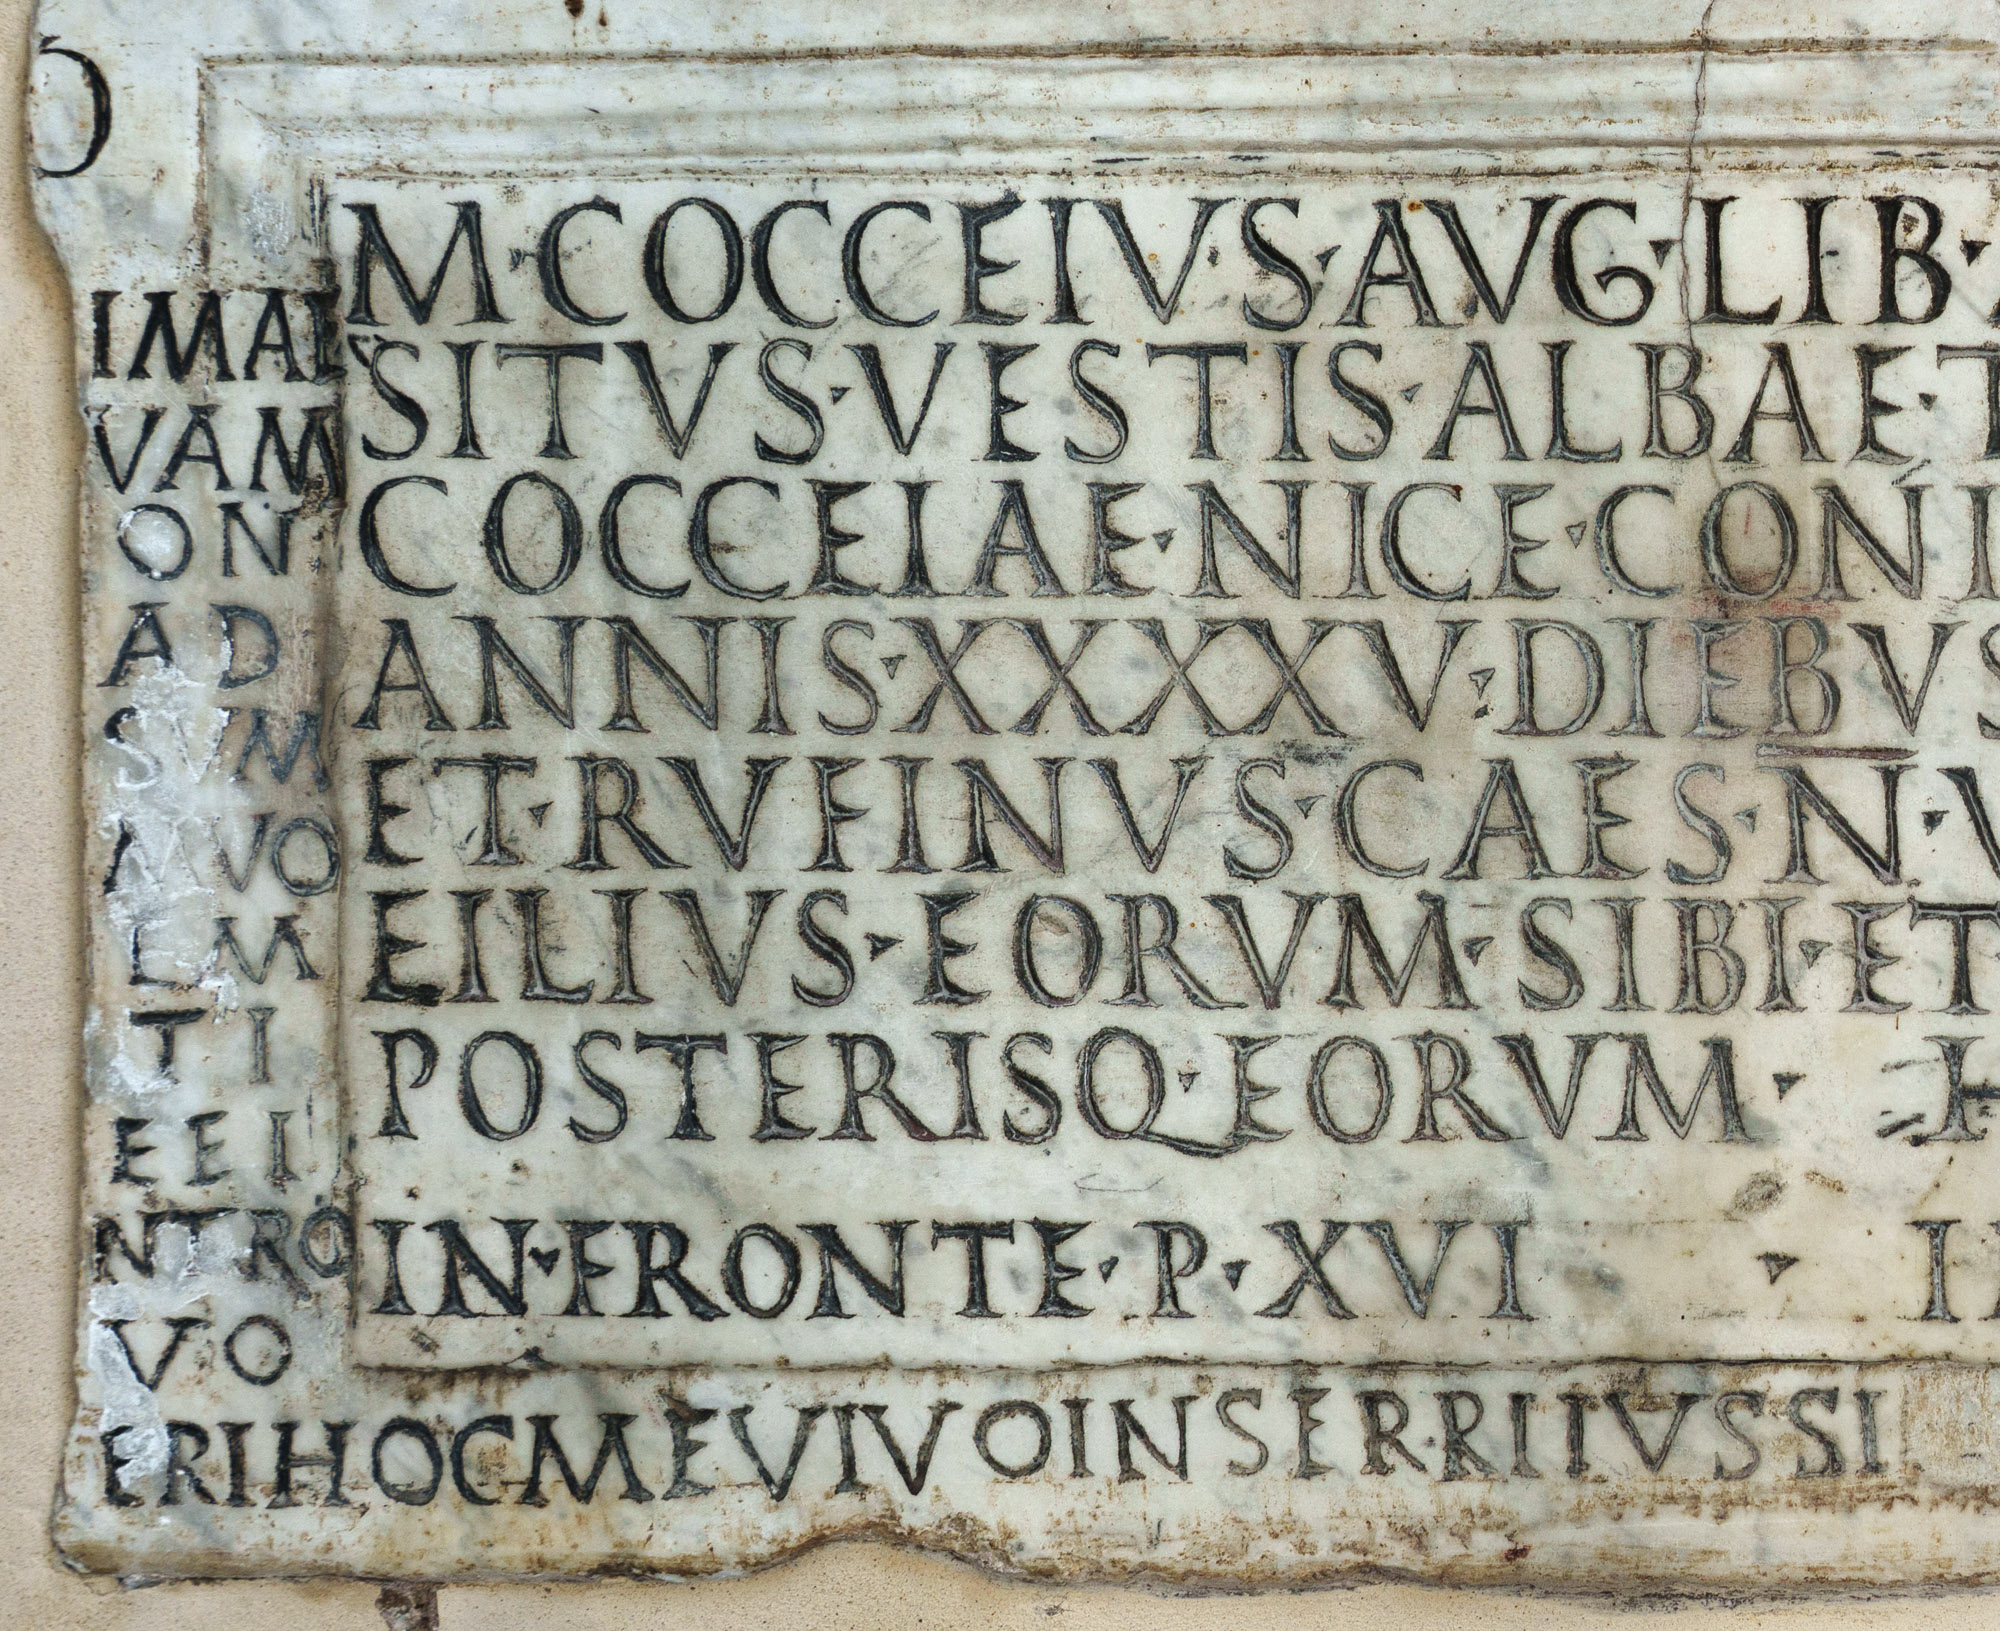 O
M·COCCEIV·S·AVG·LIB·
SITVS·VESTIS·ALBAE·T
COCCEIAE·NICE·CONI
ANNIS·XXXXV·DIEBVS
ET·RVFINVS·CAES·N·V
EILIVS·EORVM·SIBI·ET·
POSTERISQ·EORVM· H
IN·FRONTE·P·XVI · I
IMAE
VAM
ON
AD
SVM
MVO
LM
TI
EEI
NTRO
VO
ERIHOCMEVIVOINSERRITVSSI